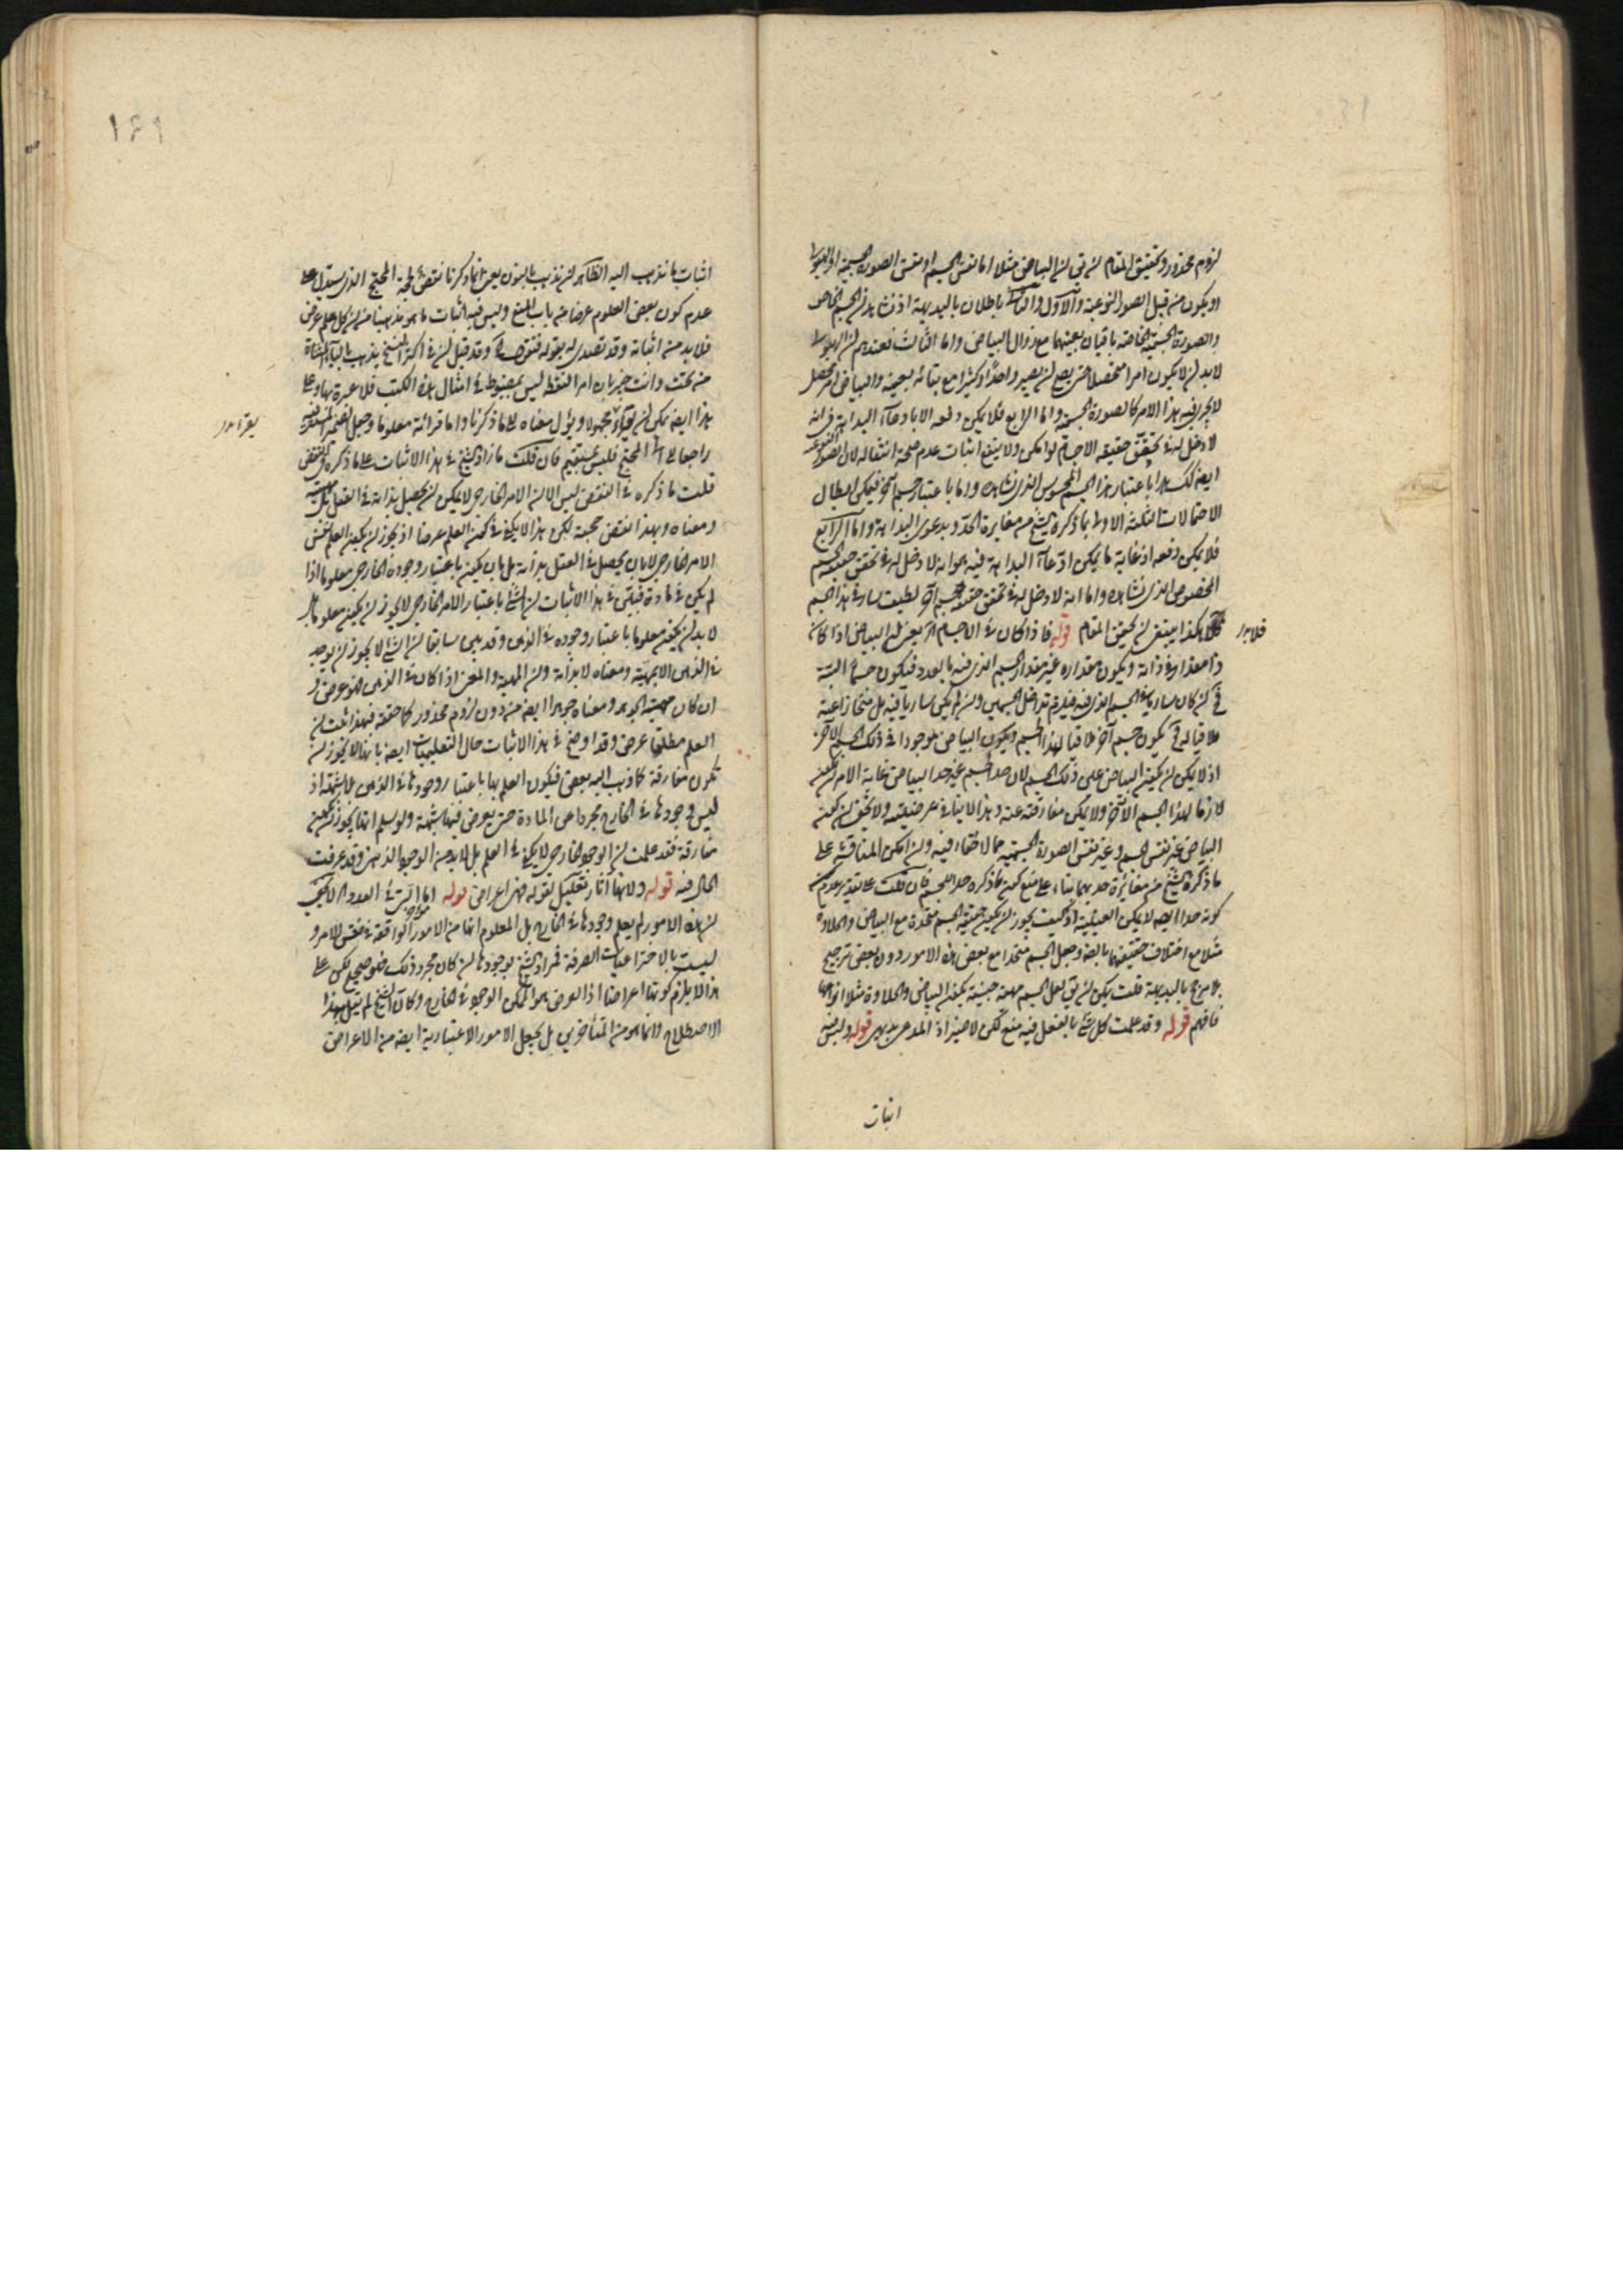 لزوم محذور وتحقيق المقام ان يق ان البياض مثلا اما نفس الجسم او نفس الصورة الجسمية او الهيولى
او يكون من قبيل الصور النوعية والاول والثانى باطلان بالبديهة اذ نشاهد ان الجسم الخاص
والصورة الجسمية الخاصة باقيان بعينهما مع زوال البياض واما الثالث فعندهم ان الهيولى
لابد ان لا يكون امرا متحصلا حتى يصح ان يصير واحدا وكثيرا مع بقائه بعينه والبياض امر متحصل
لا يجرى فيه هذا الامر كالصورة الجسمية واما الرابع فلا يمكن دفعه الا بادعاء البداهة فى انه
لا دخل له فى تحقق حقيقة الاجسام لو امكن ولا ينفع اثبات عدم صحة انتقاله لان الصور النوعية
ايضا كذلك هذا باعتبار هذا الجسم المحسوس الذى نشاهده واما باعتبار جسم آخر فيمكن ابطال
الاحتمالات الثلثة الاولى بما ذكره الشيخ من مغايرة الحد وبدعوى البداهة واما الرابع
فلا يمكن دفعه اذ غاية ما يمكن ادعاء البداهة فيه هو انه لا دخل له فى تحقق حقيقة الجسم
المخصوص الذى نشاهده واما انه لا دخل له فى تحقق حقيقة جسم آخر لطيف سار فى هذا الجسم
فلا هكذا ينبغى ان يحقق المقام قوله فاذا كان فى الاجسام آه يعنى ان البياض اذا كان
ذا مقدار فى ذاته ويكون مقداره غير مقدار الجسم الذى فيه بالعدد فيكون جسما البتة
فح ان كان ساريا فى الجسم الذى فيه فيلزم تداخل الجسمين وان لم يكن ساريا فيه بل منحازا عنه
ملاقيا له فح يكون جسم آخر ملاقيا لهذا الجسم ويكون البياض موجودا فى ذلك الجسم الآخر
اذ لا يمكن ان يكون البياض عين ذلك الجسم لان حد الجسم غير حد البياض غاية الامر ان يكون
لازما لهذا الجسم الآخر ولا يمكن مفارقته عنه وهذا لا ينافى عرضيته ولا يخفى ان كون
البياض غير نفس الجسم وغير نفس الصورة الجسمية مما لا خفاء فيه وان امكن المناقشة على
ما ذكره الشيخ من مغايرة حديهما بناء على منع كون ما ذكره حد الجسم فان قلت على تقدير عدم
كونه حدا ايضا لا يمكن العينية اذ كيف يجوز ان يكون حقيقة الجسم متحدة مع البياض والحلاوة
مثلا مع اختلاف حقيقتهما بالبداهة وجعل الجسم متحدا مع بعض هذه الامور دون بعض ترجيح
بلا مرجح بالبديهة قلت يمكن ان يق لعل الجسم مهية جنسية يكون البياض والحلاوة مثلا انواعها
فافهم قوله وقد علمت كل شئ بالفعل فيه منع لكن لا ضير اذ المدعى بديهى قوله وليس
فلا بد
اثبات
١٤٩
اثبات ما نذهب اليه الظاهر ان نذهب بالنون يعنى انما ذكرنا نقض لحجة المحتج الذى يستدل على
عدم كون بعض العلوم عرضا من باب المنع وليس فيه اثبات ما هو مذهبنا من ان كل علم عرض
فلابد من اثباته وقد تصدى له بقوله فنقول وقد قيل ان فى اكثر النسخ يذهب بالياء المثناة
من تحت وانت خبير بان امر النقط ليس بمضبوط فى امثال هذه الكتب فلا عبرة بها وعلى
هذا ايضا يمكن ان يقرأ مجهولا ويؤل معناه الى ما ذكرنا واما قرائته معلوما وجعل الضمير المستتر فيه
راجعا الى المحتج فليس بمستقيم فان قلت ما زاد الشيخ فى هذا الاثبات على ما ذكره فى النقض
قلت ما ذكره فى النقض ليس الا ان الامر الخارجى لا يمكن ان يحصل بذاته فى العقل بل مهيته
ومعناه وبهذا انتقض حجته لكن هذا لا يكفى فى كون العلم عرضا اذ يجوز ان يكون العلم بنفس
الامر الخارجى لا بان يحصل فى العقل بذاته بل بان يكون باعتبار وجوده الخارجى معلوما اذا
لم يكن فى مادة فبين فى هذا الاثبات ان الشئ باعتبار الامر الخارجى لا يجوز ان يكون معلوما بل
لا بد ان يكون معلوما باعتبار وجوده فى الذهن وقد بين سابقا ان الشئ لا يجوز ان يوجد
فى الذهن الا بمهيته ومعناه لا بذاته وان المهية والمعنى اذا كان فى الذهن فهو عرض و
ان كان مهية الجوهر ومعناه جوهرا ايضا من دون لزوم محذور كما حققه فبهذا ثبت ان
العلم مطلقا عرض وقد اوضح فى هذا الاثبات حال التعليميات ايضا بانها لا يجوز ان
تكون مفارقة كما ذهب اليه بعض فيكون العلم بها باعتبار وجودها فى الذهن بلا شبهة اذ
ليس وجودها فى الخارج مجردا عن المادة حتى يعرض فيها شبهة ولو سلم انها يجوز ان يكون
مفارقة فقد علمت ان الوجود الخارجى لا يكفى فى العلم بل لا بد من الوجود الذهنى وقد عرفت
الحال فيه قوله ولانها آثار تعليل لقوله فهى اعراض قوله اما التى فى العدد الا يخفى
ان هذه الامور لم يعلم وجودها فى الخارج بل المعلوم انها من الامور الواقعة فى نفس الامر و
ليست بالاختراعيات الصرفة فمراد الشيخ بوجودها ان كان مجرد ذلك فهو صحيح لكن على
هذا لا يلزم كونها اعراضا اذ العرض هو الممكن الموجود فى الخارج وكان الشيخ لم يقل بهذا
الاصطلاح وانما هو من المتأخرين بل يجعل الامور الاعتبارية ايضا من الاعراض